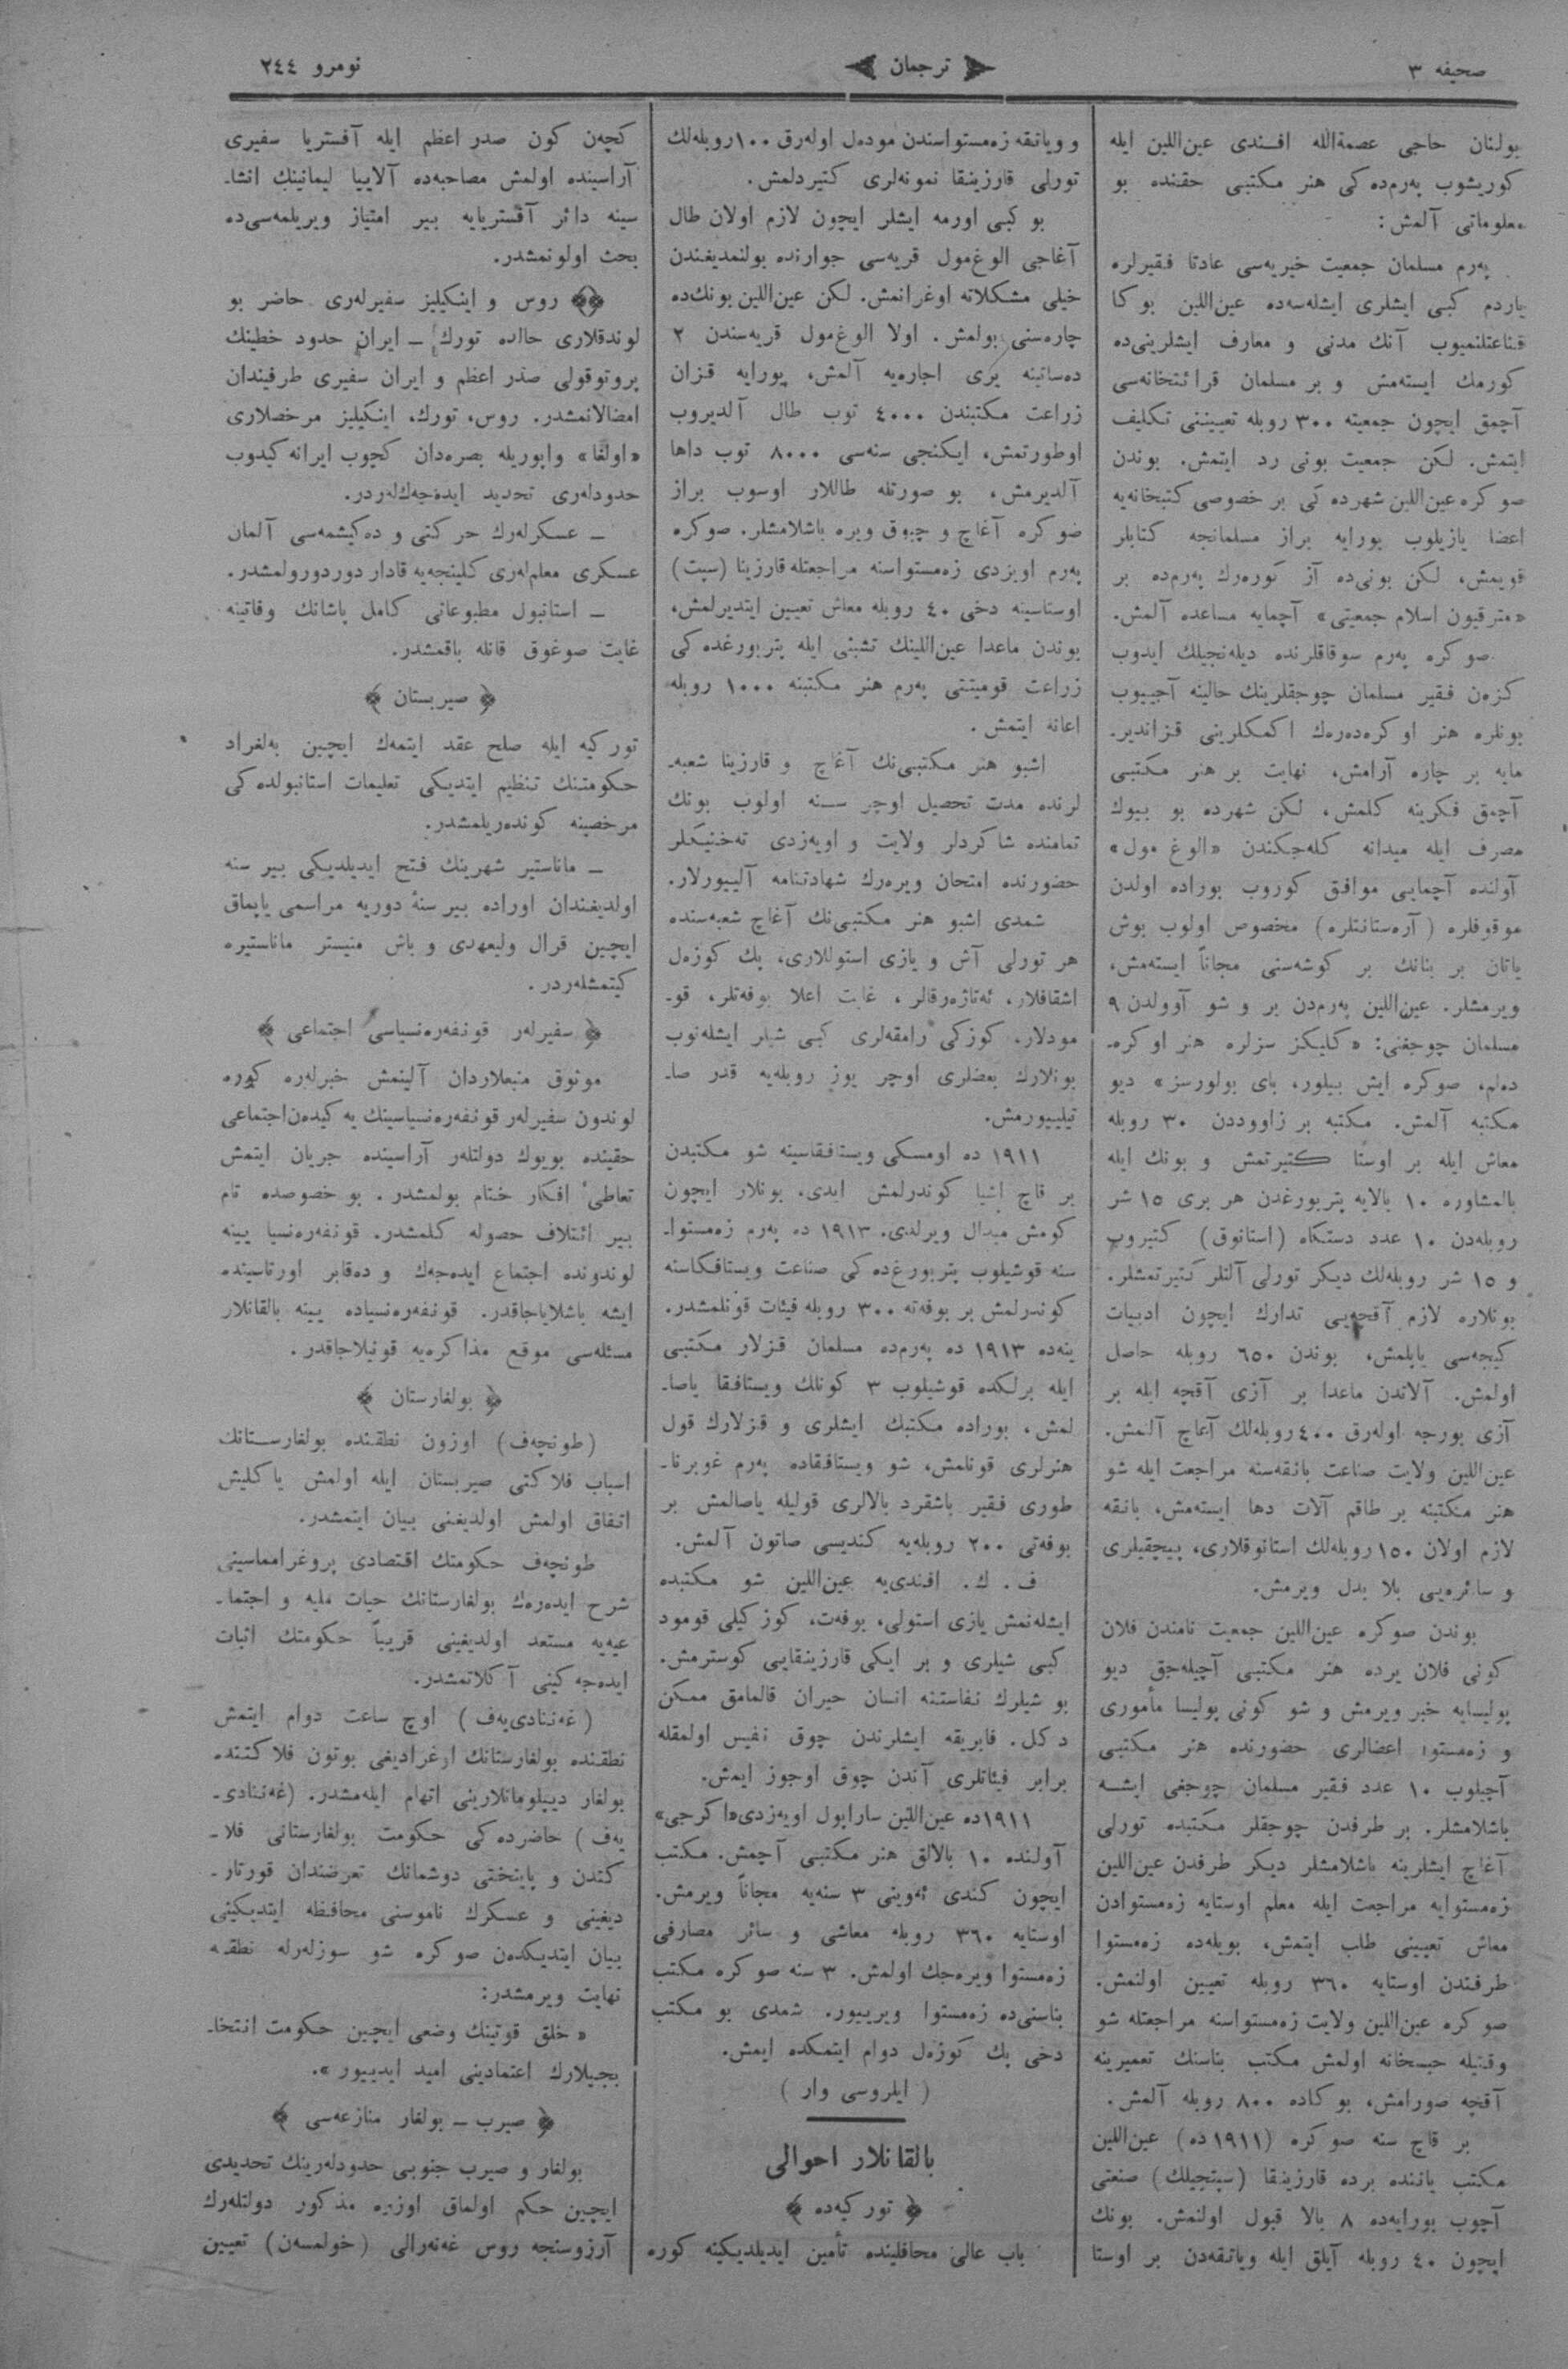 صحیفه ٣
ترجمان
نومرو ٢٤٤
بولنان حاجی عصمةالله افندی عین‌اللین ایله
کوریشوب پەرم‌ده کی هنر مکتبی حقنده بو
معلوماتی آلمش:
پەرم مسلمان جمعیت خیریه‌سی عادتا فقیرلره
یاردم کبی ایشلری ایشله‌سه‌ده عین‌اللین بوکا
قناعتلنمیوب آنك مدنی و معارف ایشلرینی‌ده
کورمك ایسته‌مش و بر مسلمان قرائتخانه‌سی
آچمق ایچون جمعیته ٣٠٠ روبله تعییننی تکلیف
ایتمش. لکن جمعیت بونی رد ایتمش. بوندن
صوکره عین‌اللین شهرده کی بر خصوصی کتبخانه‌یه
اعضا یازیلوب بورایه براز مسلمانجه کتابلر
قویمش، لکن بونی‌ده آز کوره‌رك پەرم‌ده بر
«مترقیون اسلام جمعیتی» آچمایه مساعده آلمش.
صوکره پەرم سوقاقلرنده دیله‌نجیلك ایدوب
کزەن فقیر مسلمان چوجقلرینك حالینه آجییوب
بونلره هنر اوکره‌ده‌رەك اکمکلرینی قزاندیر-
مایه بر چاره آرامش، نهایت بر هنر مکتبی
آچمق فکرینه کلمش، لکن شهرده بو بیوك
مصرف ایله میدانه کله‌جکندن «الوغ مول»
آولنده آچمایی موافق کوروب بوراده اولدن
موقوفلره (آرەستانتلره) مخصوص اولوب بوش
یاتان بر بنانك بر کوشه‌سنی مجاناً ایسته‌مش،
ویرمشلر. عین‌اللین پەرم‌دن بر و شو آوولدن ٩
مسلمان چوجغنی: «کلیکز سزلره هنر اوکره-
ده‌لم، صوکره ایش بیلور، بای بولورسز» دیو
مکتبه آلمش. مکتبه بر زاووددن ٣٠ روبله
معاش ایله بر اوستا کتیرتمش و بونك ایله
بالمشاوره ١٠ بالایه پتربورغدن هر بری ١٥ شر
روبله‌دن ١٠ عدد دستکاه (استانوق) کتیروب
و ١٥ شر روبله‌لك دیکر تورلی آلتلر کتیرتمشلر.
بونلاره لازم آقچه‌یی تدارك ایچون ادبیات
کیجه‌سی یاپلمش، بوندن ٦٥٠ روبله حاصل
اولمش. آلاتدن ماعدا بر آزی آقچه ایله بر
آزی بورجه اوله‌رق ٤٠٠ روبله‌لك آغاچ آلمش.
عین‌اللین ولایت صناعت بانقه‌سنه مراجعت ایله شو
هنر مکتبنه بر طاقم آلات دها ایسته‌مش، بانقه
لازم اولان ١٥٠ روبله‌لك استانوقلاری، بیچقیلری
و سائره‌یی بلا بدل ویرمش.
بوندن صوکره عین‌اللین جمعیت نامندن فلان
کونی فلان یرده هنر مکتبی آچیله‌جق دیو
پولیسایه خبر ویرمش و شو کونی پولیسا مأموری
و زەمستوا اعضالری حضورنده هنر مکتبی
آچیلوب ١٠ عدد فقیر مسلمان چوجغی ایشـه
باشلامشلر. بر طرفدن چوجقلر مکتبده تورلی
آغاچ ایشلرینه باشلامشلر دیکر طرفدن عین‌اللین
زەمستوایه مراجعت ایله معلم اوستایه زەمستوادن
معاش تعیینی طلب ایتمش، بویله‌ده زەمستوا
طرفندن اوستایه ٣٦٠ روبله تعیین اولنمش.
صوکره عین‌اللین ولایت زەمستواسنه مراجعتله شو
وقتیله حبسخانه اولمش مکتب بناسنك تعمیرینه
آقچه صورامش، بوکاده ٨٠٠ روبله آلمش.
بر قاچ سنه صوکره (١٩١١ ده) عین‌اللین
مکتب یاننده برده قارزینقا (سپتجیلك) صنعتی
آچوب بورایه‌ده ٨ بالا قبول اولنمش. بونك
ایچون ٤٠ روبله آیلق ایله ویاتقه‌دن بر اوستا
و ویاتقه زەمستواسندن موده‌ل اوله‌رق ١٠٠ روبله‌لك
تورلی قارزینقا نمونه‌لری کتیردلمش.
بو کبی اورمه ایشلر ایچون لازم اولان طال
آغاجی الوغ‌مول قریه‌سی جوارنده بولنمدیغندن
خیلی مشکلاته اوغرانمش. لکن عین‌اللین بونك‌ده
چاره‌سنی بولمش. اولا الوغ‌مول قریه‌سندن ٢
ده‌ساتینه یری اجاره‌یه آلمش، بورایه قزان
زراعت مکتبندن ٤٠٠٠ توب طال آلدیروب
اوطورتمش، ایکنجی سنه‌سی ٨٠٠٠ توب داها
آلدیرمش، بو صورتله طاللار اوسوب براز
صوکره آغاچ و چبوق ویره باشلامشلر. صوکره
پەرم اویزدی زەمستواسنه مراجعتله قارزینا (سپت)
اوستاسینه دخی ٤٠ روبله معاش تعیین ایتدیرلمش،
بوندن ماعدا عین‌اللینك تشبثی ایله پتربورغده کی
زراعت قومیتتی پەرم هنر مکتبنه ١٠٠٠ روبله
اعانه ایتمش.
اشبو هنر مکتبی‌نك آغاچ و قارزینا شعبه-
لرنده مدت تحصیل اوچر سـنه اولوب بونك
تمامنده شاکردلر ولایت و اویه‌زدی ته‌خنیکلر
حضورنده امتحان ویره‌رك شهادتنامه آلییورلار.
شمدی اشبو هنر مکتبی‌نك آغاچ شعبه‌سنده
هر تورلی آش و یازی استوللاری، پك کوزه‌ل
اشقافلار، ئه‌تاژه‌رقالر، غایت اعلا بوفه‌تلر، قو-
مودلار، کوزکی رامقه‌لری کبی شیلر ایشله‌نوب
بونلارك بعضلری اوچر یوز روبله‌یه قدر صا-
تیلییورمش.
١٩١١ ده اومسکی ویستافقاسینه شو مکتبدن
بر قاچ اشیا کوندرلمش ایدی. بونلار ایچون
کومش میدال ویرلدی. ١٩١٣ ده پەرم زەمستوا-
سنه قوشیلوب پتربورغ‌ده کی صناعت ویستافکاسنه
کوندرلمش بر بوفه‌ته ٣٠٠ روبله فیئات قونلمشدر.
ینه‌ده ١٩١٣ ده پەرم‌ده مسلمان قزلار مکتبی
ایله برلکده قوشیلوب ٣ کونلك ویستافقا یاصا-
لمش، بوراده مکتبك ایشلری و قزلارك قول
هنرلری قونلمش، شو ویستافقاده پەرم غوبرنا-
طوری فقیر باشقرد بالالری قولیله یاصالمش بر
بوفه‌تی ٢٠٠ روبله‌یه کندیسی صاتون آلمش.
ف. ك. افندی‌یه عین‌اللین شو مکتبده
ایشله‌نمش یازی استولی، بوفه‌ت، کوزکیلی قومود
کبی شیلری و بر ایکی قارزینقایی کوسترمش.
بو شیلرك نفاستنه انسان حیران قالمامق ممکن
دکل. فابریقه ایشلرندن چوق نفیس اولمقله
برابر فیئاتلری آندن چوق اوجوز ایمش.
١٩١١ ده عین‌اللین ساراپول اویه‌زدی «اکرجی»
آولنده ١٠ بالالق هنر مکتبی آچمش. مکتب
ایچون کندی ئه‌وینی ٣ سنه‌یه مجاناً ویرمش.
اوستایه ٣٦٠ روبله معاشی و سائر مصارفی
زەمستوا ویره‌جك اولمش. ٣ سنه صوکره مکتب
بناسنی‌ده زەمستوا ویرییور. شمدی بو مکتب
دخی پك کوزه‌ل دوام ایتمکده ایمش.
(ایلروسی وار)
بالقانلار احوالی
﴿ تورکیه‌ده ﴾
باب عالی محافلینده تأمین ایدیلدیکینه کوره
کچەن کون صدر اعظم ایله آفستریا سفیری
آراسینده اولمش مصاحبه‌ده آلاییا لیمانینك انشا-
سینه دائر آفستریایه بیر امتیاز ویریلمه‌سی‌ده
بحث اولونمشدر.
روس و اینکیلیز سفیرله‌ری حاضر بو
لوندقلاری حالده تورك – ایران حدود خطینك
پروتوقولی صدر اعظم و ایران سفیری طرفیندان
امضالانمشدر. روس، تورك، اینکیلیز مرخصلاری
«اولفا» واپوریله بصره‌دان کچوب ایرانه کیدوب
حدودله‌ری تحدید ایده‌جه‌ك‌له‌ردر.
– عسکرله‌رك حرکتی و ده‌کیشمه‌سی آلمان
عسکری معلم‌له‌ری کلینجه‌یه قادار دوردورولمشدر.
– استانبول مطبوعاتی کامل پاشانك وفاتینه
غایت صوغوق قانله باقمشدر.
﴿ صیربستان ﴾
تورکیه ایله صلح عقد ایتمه‌ك ایچین بەلغراد
حکومتنك تنظیم ایتدیکی تعلیمات استانبولده کی
مرخصینه کونده‌ریلمشدر.
– ماناستیر شهرینك فتح ایدیلدیکی بیر سنه
اولدیغندان اوراده بیر سنهٔ دوریه مراسمی یاپماق
ایچین قرال ولیعهدی و باش منیستر ماناستیره
کیتمشله‌ردر.
﴿ سفیرله‌ر قونفه‌ره‌نسیاسی اجتماعی ﴾
موثوق منبعلاردان آلینمش خبرله‌ره کوره
لوندون سفیرله‌ر قونفه‌ره‌نسیاسینك یه کیده‌ن اجتماعی
حقینده بویوك دولتله‌ر آراسینده جریان ایتمش
تعاطیٔ افکار ختام بولمشدر. بو خصوصده تام
بیر ائتلاف حصوله کلمشدر. قونفه‌ره‌نسیا یینه
لوندونده اجتماع ایده‌جه‌ك و ده‌قابر اورتاسینده
ایشه باشلایاجاقدر. قونفه‌ره‌نسیاده یینه بالقانلار
مسئله‌سی موقع مذاکره‌یه قونیلاجاقدر.
﴿ بولغارستان ﴾
(طونچه‌ف) اوزون نطقنده بولغارسـتانك
اسباب فلاکتی صیربستان ایله اولمش یاکلیش
اتفاق اولمش اولدیغنی بیان ایتمشدر.
طونچه‌ف حکومتك اقتصادی پروغرامماسینی
شرح ایده‌ره‌ك بولغارستانك حیات ملیه و اجتما-
عیه‌یه مستعد اولدیغینی قریباً حکومتك اثبات
ایده‌جه‌کینی آکلاتمشدر.
(غه‌ننادی‌یه‌ف) اوچ ساعت دوام ایتمش
نطقنده بولغارستانك اوغرادیغی بوتون فلاکتنده
بولغار دیپلوماتلارینی اتهام ایله‌مشدر. (غه‌ننادی-
یه‌ف) حاضرده کی حکومت بولغارستانی فلا-
کتدن و پایتختی دوشمانك تعرضندان قورتار-
دیغینی و عسکرك ناموسنی محافظه ایتدیکینی
بیان ایتدیکدەن صوکره شو سوزله‌رله نطقـه
نهایت ویرمشدر:
«خلق قوتینك وضعی ایچین حکومت انتخا-
بجیلارك اعتمادینی امید ایدییور».
﴿ صیرب – بولغار منازعه‌سی ﴾
بولغار و صیرب جنوبی حدودله‌رینك تحدیدی
ایچین حکم اولماق اوزره مذکور دولتله‌رك
آرزوسنجه روس غه‌نه‌رالی (خولمسەن) تعیین